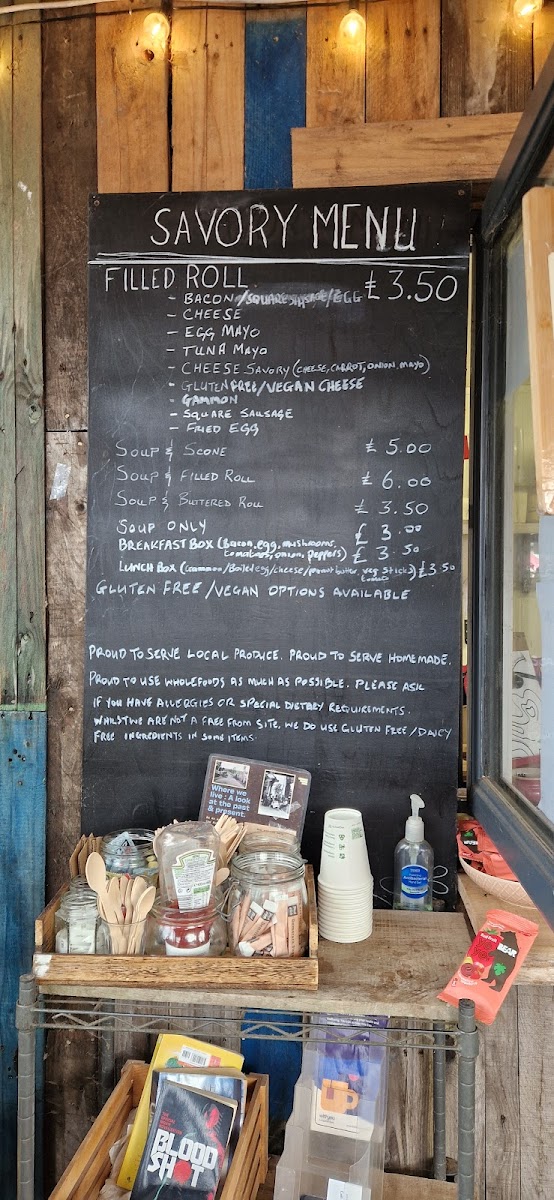 SAVORY MENU
FILLED ROLL £3.50
- BACON/SQUARE SAUSAGE/EGG
- CHEESE
- EGG MAYO
- TUNA MAYO
- CHEESE SAVORY (CHEESE, CARROT, ONION, MAYO)
- GLUTEN FREE/VEGAN CHEESE
- GAMMON
- SQUARE SAUSAGE
- FRIED EGG
SOUP & SCONE £ 5.00
SOUP & FILLED ROLL £ 6.00
SOUP & BUTTERED ROLL £ 3.50
SOUP ONLY £ 3.00
BREAKFAST BOX (Bacon, egg, mushrooms, tomatoes, onion, Peppers) £ 3.50
LUNCH BOX (Gammon/Boiled egg/cheese/peanut butter, veg sticks, tomato) £3.50
GLUTEN FREE/VEGAN OPTIONS AVAILABLE
PROUD TO SERVE LOCAL PRODUCE. PROUD TO SERVE HOMEMADE.
PROUD TO USE WHOLEFOODS AS MUCH AS POSSIBLE. PLEASE ASK
IF YOU HAVE ALLERGIES OR SPECIAL DIETARY REQUIREMENTS.
WHILST WE ARE NOT A FREE FROM SITE, WE DO USE GLUTEN FREE/DAIRY
FREE INGREDIENTS IN SOME ITEMS.
Where we
live: A look
at the past
& present.
HEINZ
BEAR
BLOOD
SHOT